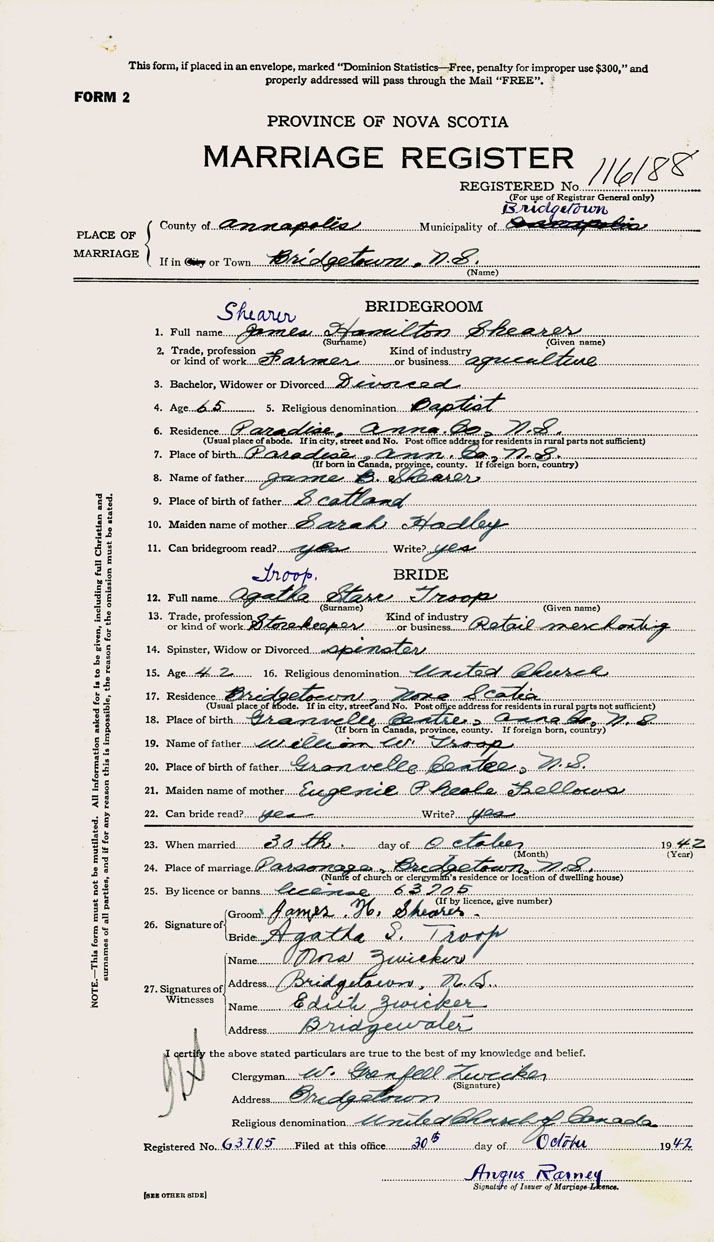 This form, if placed in an envelope, marked "Dominion Statistics—Free, penalty for improper use $300," and
properly addressed will pass through the Mail "FREE".
FORM 2
PROVINCE OF NOVA SCOTIA
MARRIAGE REGISTER
REGISTERED No. 116188
(For use of Registrar General only)
Bridgetown
PLACE OF MARRIAGE
County of Annapolis Municipality of Annapolis
If in City or Town Bridgetown, N.S.
(Name)
BRIDEGROOM
Shearer
1. Full name James Hamilton Shearer
(Surname) (Given name)
2. Trade, profession or kind of work Farmer Kind of industry or business agriculture
3. Bachelor, Widower or Divorced Divorced
4. Age 65 5. Religious denomination Baptist
6. Residence Paradise, Anna. Co, N.S.
(Usual place of abode. If in city, street and No. Post office address for residents in rural parts not sufficient)
7. Place of birth Paradise, Ann. Co, N.S.
(If born in Canada, province, county. If foreign born, country)
8. Name of father James B. Shearer
9. Place of birth of father Scotland
10. Maiden name of mother Sarah Hadley
11. Can bridegroom read? yes Write? yes
Troop. BRIDE
12. Full name Agatha Starr Troop
(Surname) (Given name)
13. Trade, profession or kind of work Storekeeper Kind of industry or business Retail merchanting
14. Spinster, Widow or Divorced spinster
15. Age 42 16. Religious denomination United Church
17. Residence Bridgetown, Nova Scotia
(Usual place of abode. If in city, street and No. Post office address for residents in rural parts not sufficient)
18. Place of birth Granville Centre, Anna Co, N.S
(If born in Canada, province, county. If foreign born, country)
19. Name of father William W. Troop
20. Place of birth of father Granville Centre, N.S.
21. Maiden name of mother Eugenie Fellows
22. Can bride read? yes Write? yes
23. When married 30th. day of October 1942
(Month) (Year)
24. Place of marriage Parsonage, Bridgetown, N.S.
(Name of church or clergyman's residence or location of dwelling house)
25. By licence or banns license 63705
(If by licence, give number)
26. Signature of
Groom James. H. Shearer.
Bride Agatha S. Troop
27. Signatures of Witnesses
Name Nora Zwicker
Address Bridgetown, N.S.
Name Edith Zwicker
Address Bridgewater
I certify the above stated particulars are true to the best of my knowledge and belief.
Clergyman W. Grenfell Zwicker
(Signature)
Address Bridgetown
Religious denomination United Church of Canada
Registered No. 63705 Filed at this office 30th day of October 1942
Angus Ramey
Signature of Issuer of Marriage Licence.
[SEE OTHER SIDE]
NOTE.—This form must not be mutilated. All information asked for is to be given, including full Christian and
surnames of all parties, and if for any reason this is impossible, the reason for the omission must be stated.